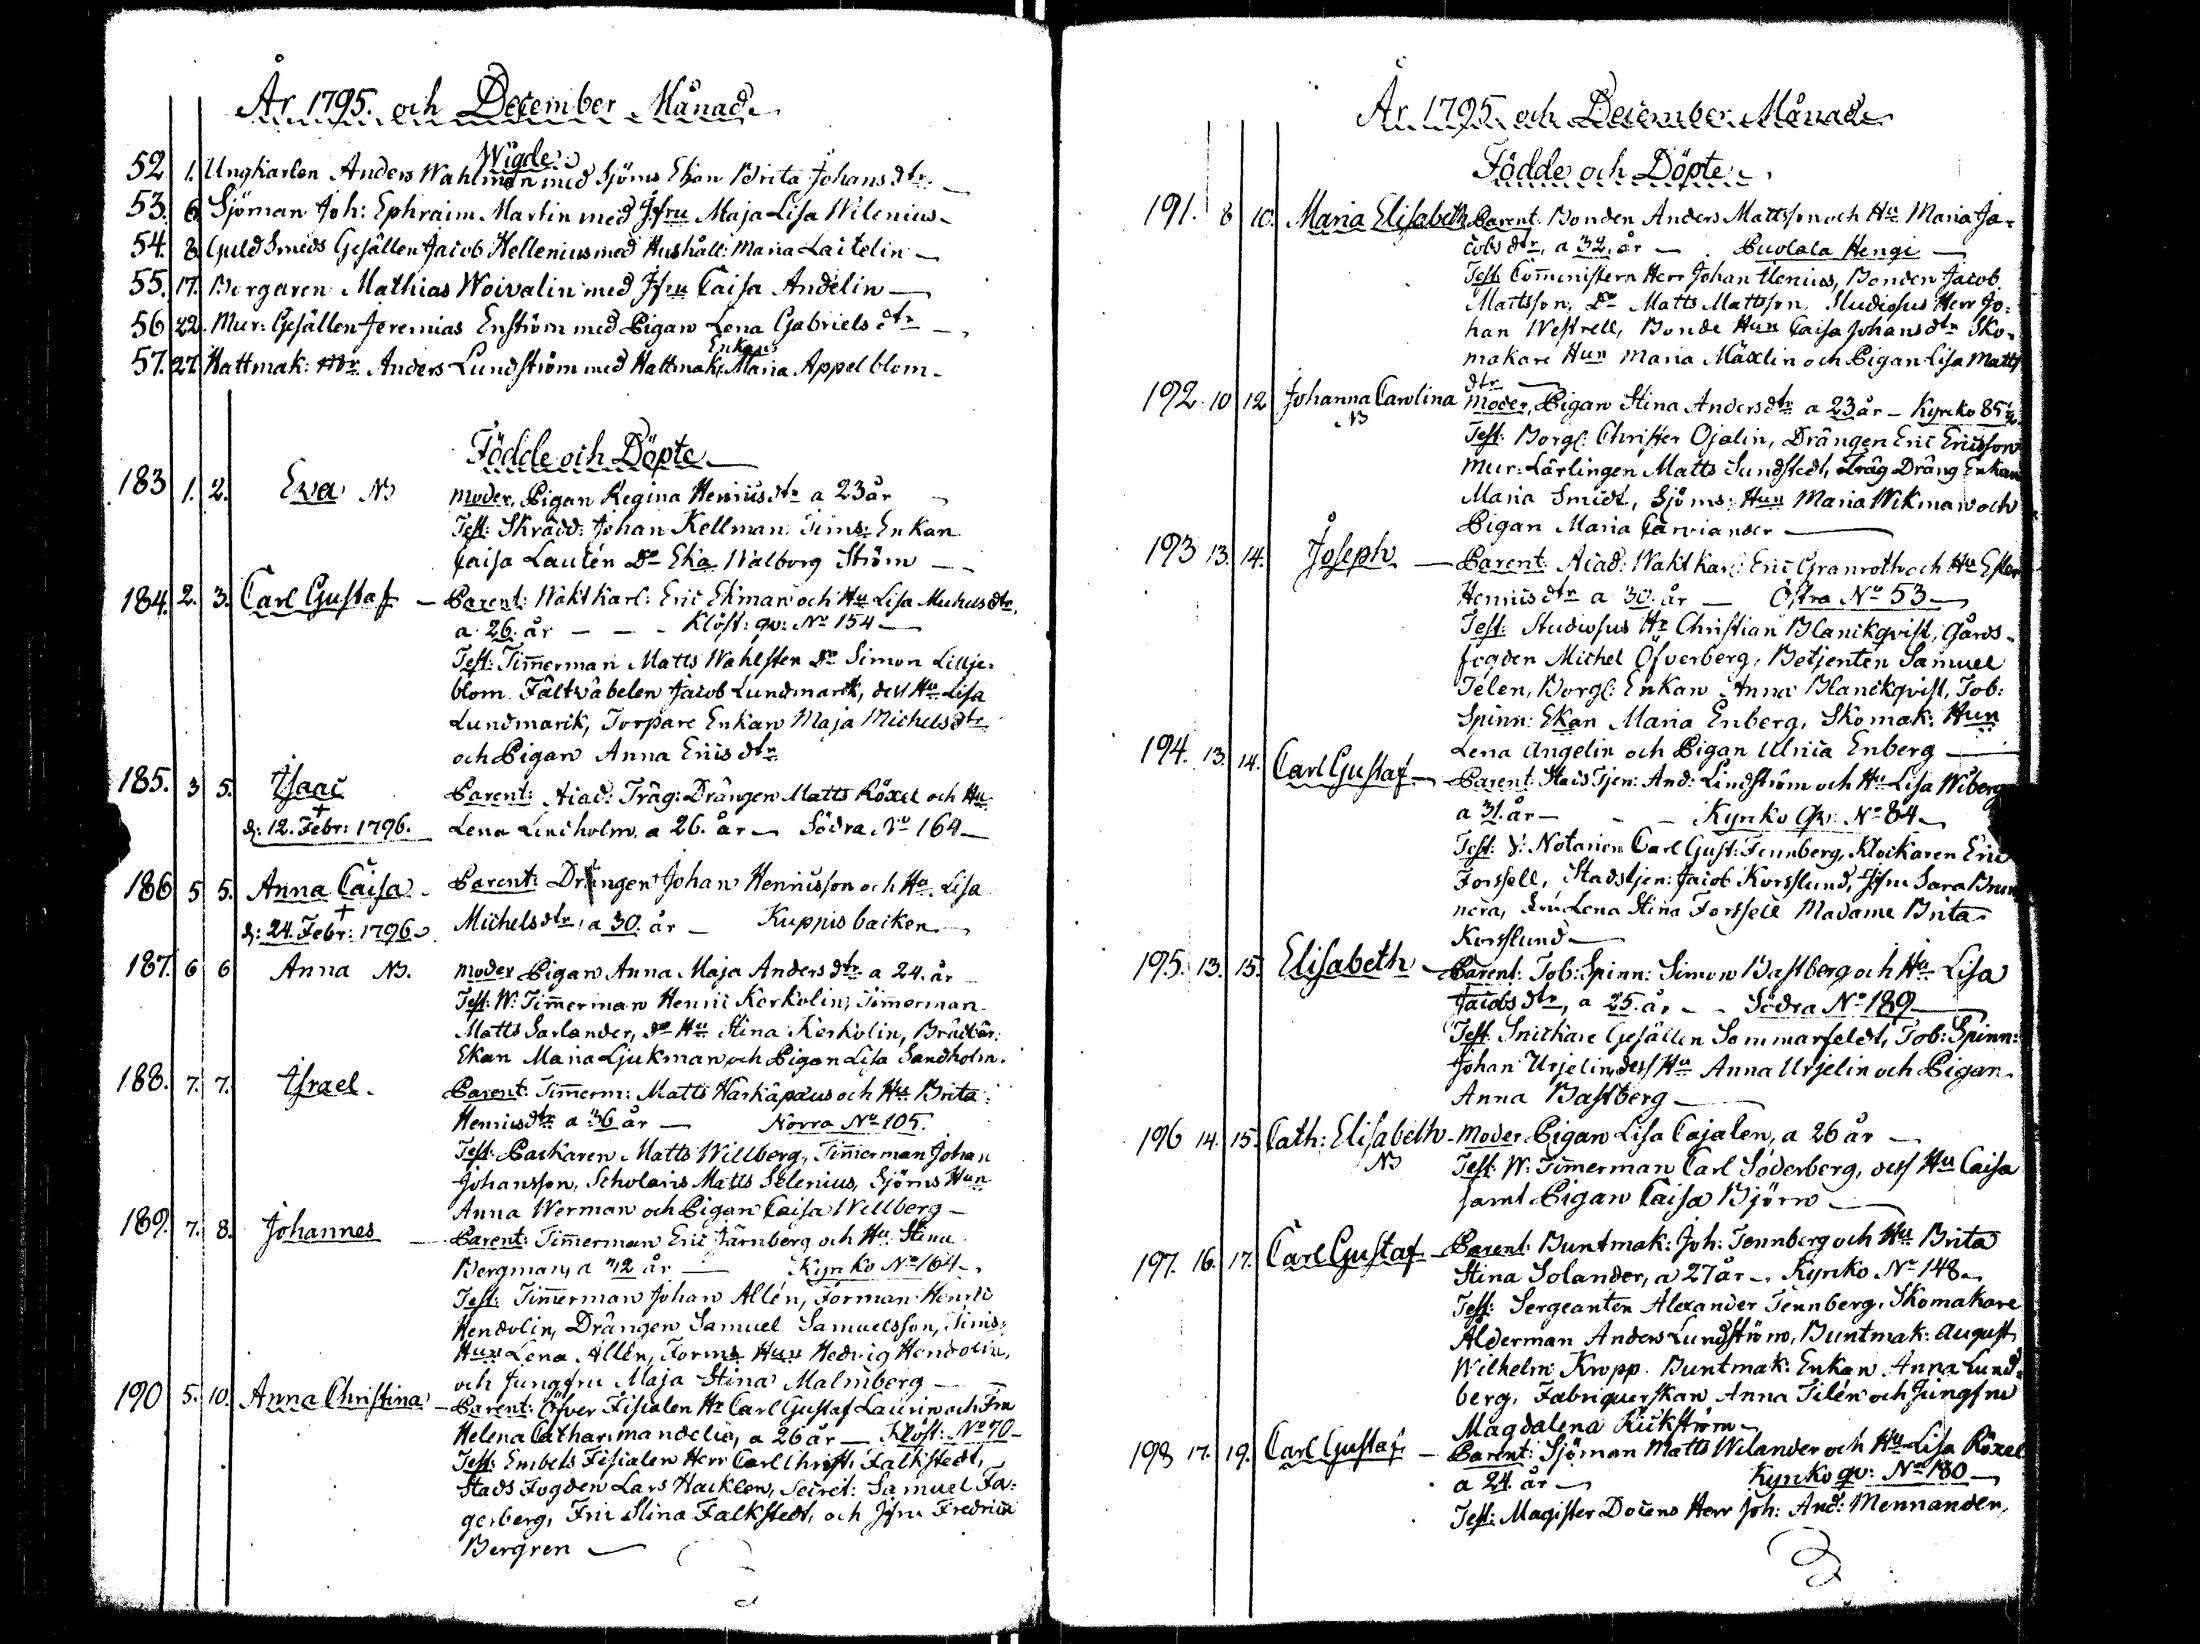 År 1795. och December Månad
Wigde
52 1. Ungkarlen Anders Wahlman med Sjöms Ekan Brita Johans dtr.
53. 6 Sjöman Joh: Ephraim Martin med Jfru Maja Lisa Wilenius
54. 8 Guld Smeds Gesällen Jacob Hellenius med Hushåll: Maria Laitelin
55. 17. Borgaren Mathias Woivalin med Jfru Caisa Andelin
56 22. Mur: Gesällen Jeremias Enström med Pigan Lena Gabriels dtr
57. 27. Hattmak: Mr Anders Lundström med Hattmak: Enkan Maria Appelblom
Födde och Döpte
183 1. 2. Eva NB moder, Pigan Regina Henrics dtr a 23 år
Test: Skrädd: Johan Kellman. Tims: Enkan
Caisa Lautén Do Eka Walborg Ström
184. 2. 3. Carl Gustaf Parent: Waktkarl: Eric Ekman och Hu Lisa Michels dtr,
a 26. år Klöst: qv: No 154
Test: Timmerman Matts Wahlsten Do Simon Lillje-
blom Fältväbelen Jacob Lundmarck, dess Hu Lisa
Lundmarck, Torpare Enkan Maja Michels dtr
och Pigan Anna Erics dtr
185. 3 5. Isaac Parent: Acad: Träg: Drängen Matts Röxel och Hu
+
d: 12. Febr: 1796. Lena Lindholm, a 26. år Södra No 164
186 5 5. Anna Caisa Parent: Drängen Johan Henricsson och Hu Lisa
+
d: 24. Febr: 1796 Michels dtr, a 30. år Kuppis backen
187. 6 6 Anna NB. moder Pigan Anna Maja Anders dtr a 24. år
Test: W: Timmerman Henric Kerkolin, Timmerman
Matts Sarlander, do Hu Stina Kerkolin, Brädbär:
Ekan Maria Ljukman, och Pigan Lisa Sandholm.
188. 7. 7. Israel. Parent: Timmerm: Matts Harkäpäus och Hu Brita
Henrics dtr a 36 år Norra No 105.
Test: Packaren Matts Willberg, Timmerman Johan
Johansson, Scholaris Matts Selenius, Sjöms Hun
Anna Werman och Pigan Caisa Willberg
189. 7. 8. Johannes Parent: Timmerman Eric Järnberg och Hu Stina
Bergman, a 42 år Kyrko No 164
Test: Timmerman Johan Allén, Forman Henric
Hendolin, Drängen Samuel Samuelsson, Tims:
Hun Lena Allén, Forms Hun Hedvig Hendolin,
och Jungfru Maja Stina Malmberg
190 5. 10. Anna Christina Parent: Öfver Fiscalen Hr Carl Gustaf Laurin och Fru
Helena Cathar: mandelin, a 26 år Klöst: No 70
Test: Embets Fiscalen Herr Carl Christ: Falkstedt,
Stads Fogden Lars Hacklen, Secret: Samuel Fa-
gerberg, Fru Stina Falkstedt, och Jfru Fredrica
Bergren
År 1795 och December Månad
Födde och Döpte
191. 8 10. Maria Elisabeth Parent: Bonden Anders Mattsson och Hu Maria Ja-
cobs dtr, a 32. år Puolala Hengi
Test: Comministern Herr Johan Ilenius, Bonden Jacob
Mattsson, Do Matts Mattsson, Studiosus Herr Jo-
han Westrell, Bonde Hun Caisa Johans dtr Sko-
makare Hun Maria Mäxlin och Pigan Lisa Matts
dtr
192. 10 12 Johanna Carolina moder, Pigan Stina Anders dtr a 23 år Kyrko 85 1/2.
NB
Test: Borgl: Christer Ojalin, Drängen Eric Ericsson
Mur: Lärlingen Matts Sundstedt, Träg Dräng Enkan
Maria Smidt, Sjöms: Hun Maria Wikman och
Pigan Maria Carviander
193 13. 14. Joseph Parent: Acad: Waktkarl: Eric Granroth och Hu Ester
Henrics dtr a 30. år Östra No 53
Test: Studiosus Hr Christian Blanckqvist, Gårds-
fogden Michel Öfverberg, Betjenten Samuel
Télen, Borgl: Enkan Anna Blanckqvist, Tob:
Spinn: Ekan Maria Enberg, Skomak: Hun
Lena Angelin och Pigan Ulrica Enberg
194. 13. 14. Carl Gustaf Parent: Stads Tjen: And: Lindström och Hu Lisa Wiberg
a 31. år Kyrko Qv: No 84
Test: V: Notarien Carl Gust: Tennberg, Klockaren Eric
Forssell, Stadstjen: Jacob Korsslund, Jfru Sara
nera, Fru Lena Stina Forssell Madame Brita
Korsslund
195. 13. 15. Elisabeth Parent: Tob: Spinn: Simon Bastberg och Hu Lisa
Jacobs dtr, a 25. år Södra No 189
Test: Snickare Gesällen Sommarfeldt, Tob: Spinn:
Johan Urjelin, dess Hu Anna Urjelin och Pigan
Anna Bastberg
196 14. 15. Cath: Elisabeth moder Pigan Lisa Cajalen, a 26 år
NB Test: W: Timmerman Carl Söderberg, dess Hu Caisa
samt Pigan Caisa Björn
197. 16. 17. Carl Gustaf Parent: Buntmak: Joh: Tennberg och Hu Brita
Stina Solander, a 27 år Kyrko No 148
Test: Sergeanten Alexander Tennberg, Skomakare
Ålderman Anders Lundström, Buntmak: August
Wilhelm Kropp. Buntmak: Enkan Anna Lund-
berg, Fabriqueurskan Anna Tilén och Jungfru
Magdalena Rickström
198 17. 19. Carl Gustaf Parent: Sjöman Matts Wilander och Hu Lisa Röxel
a 24. år Kyrko qv: No 180
Test: Magister Docens Herr Joh: And: Mennander,